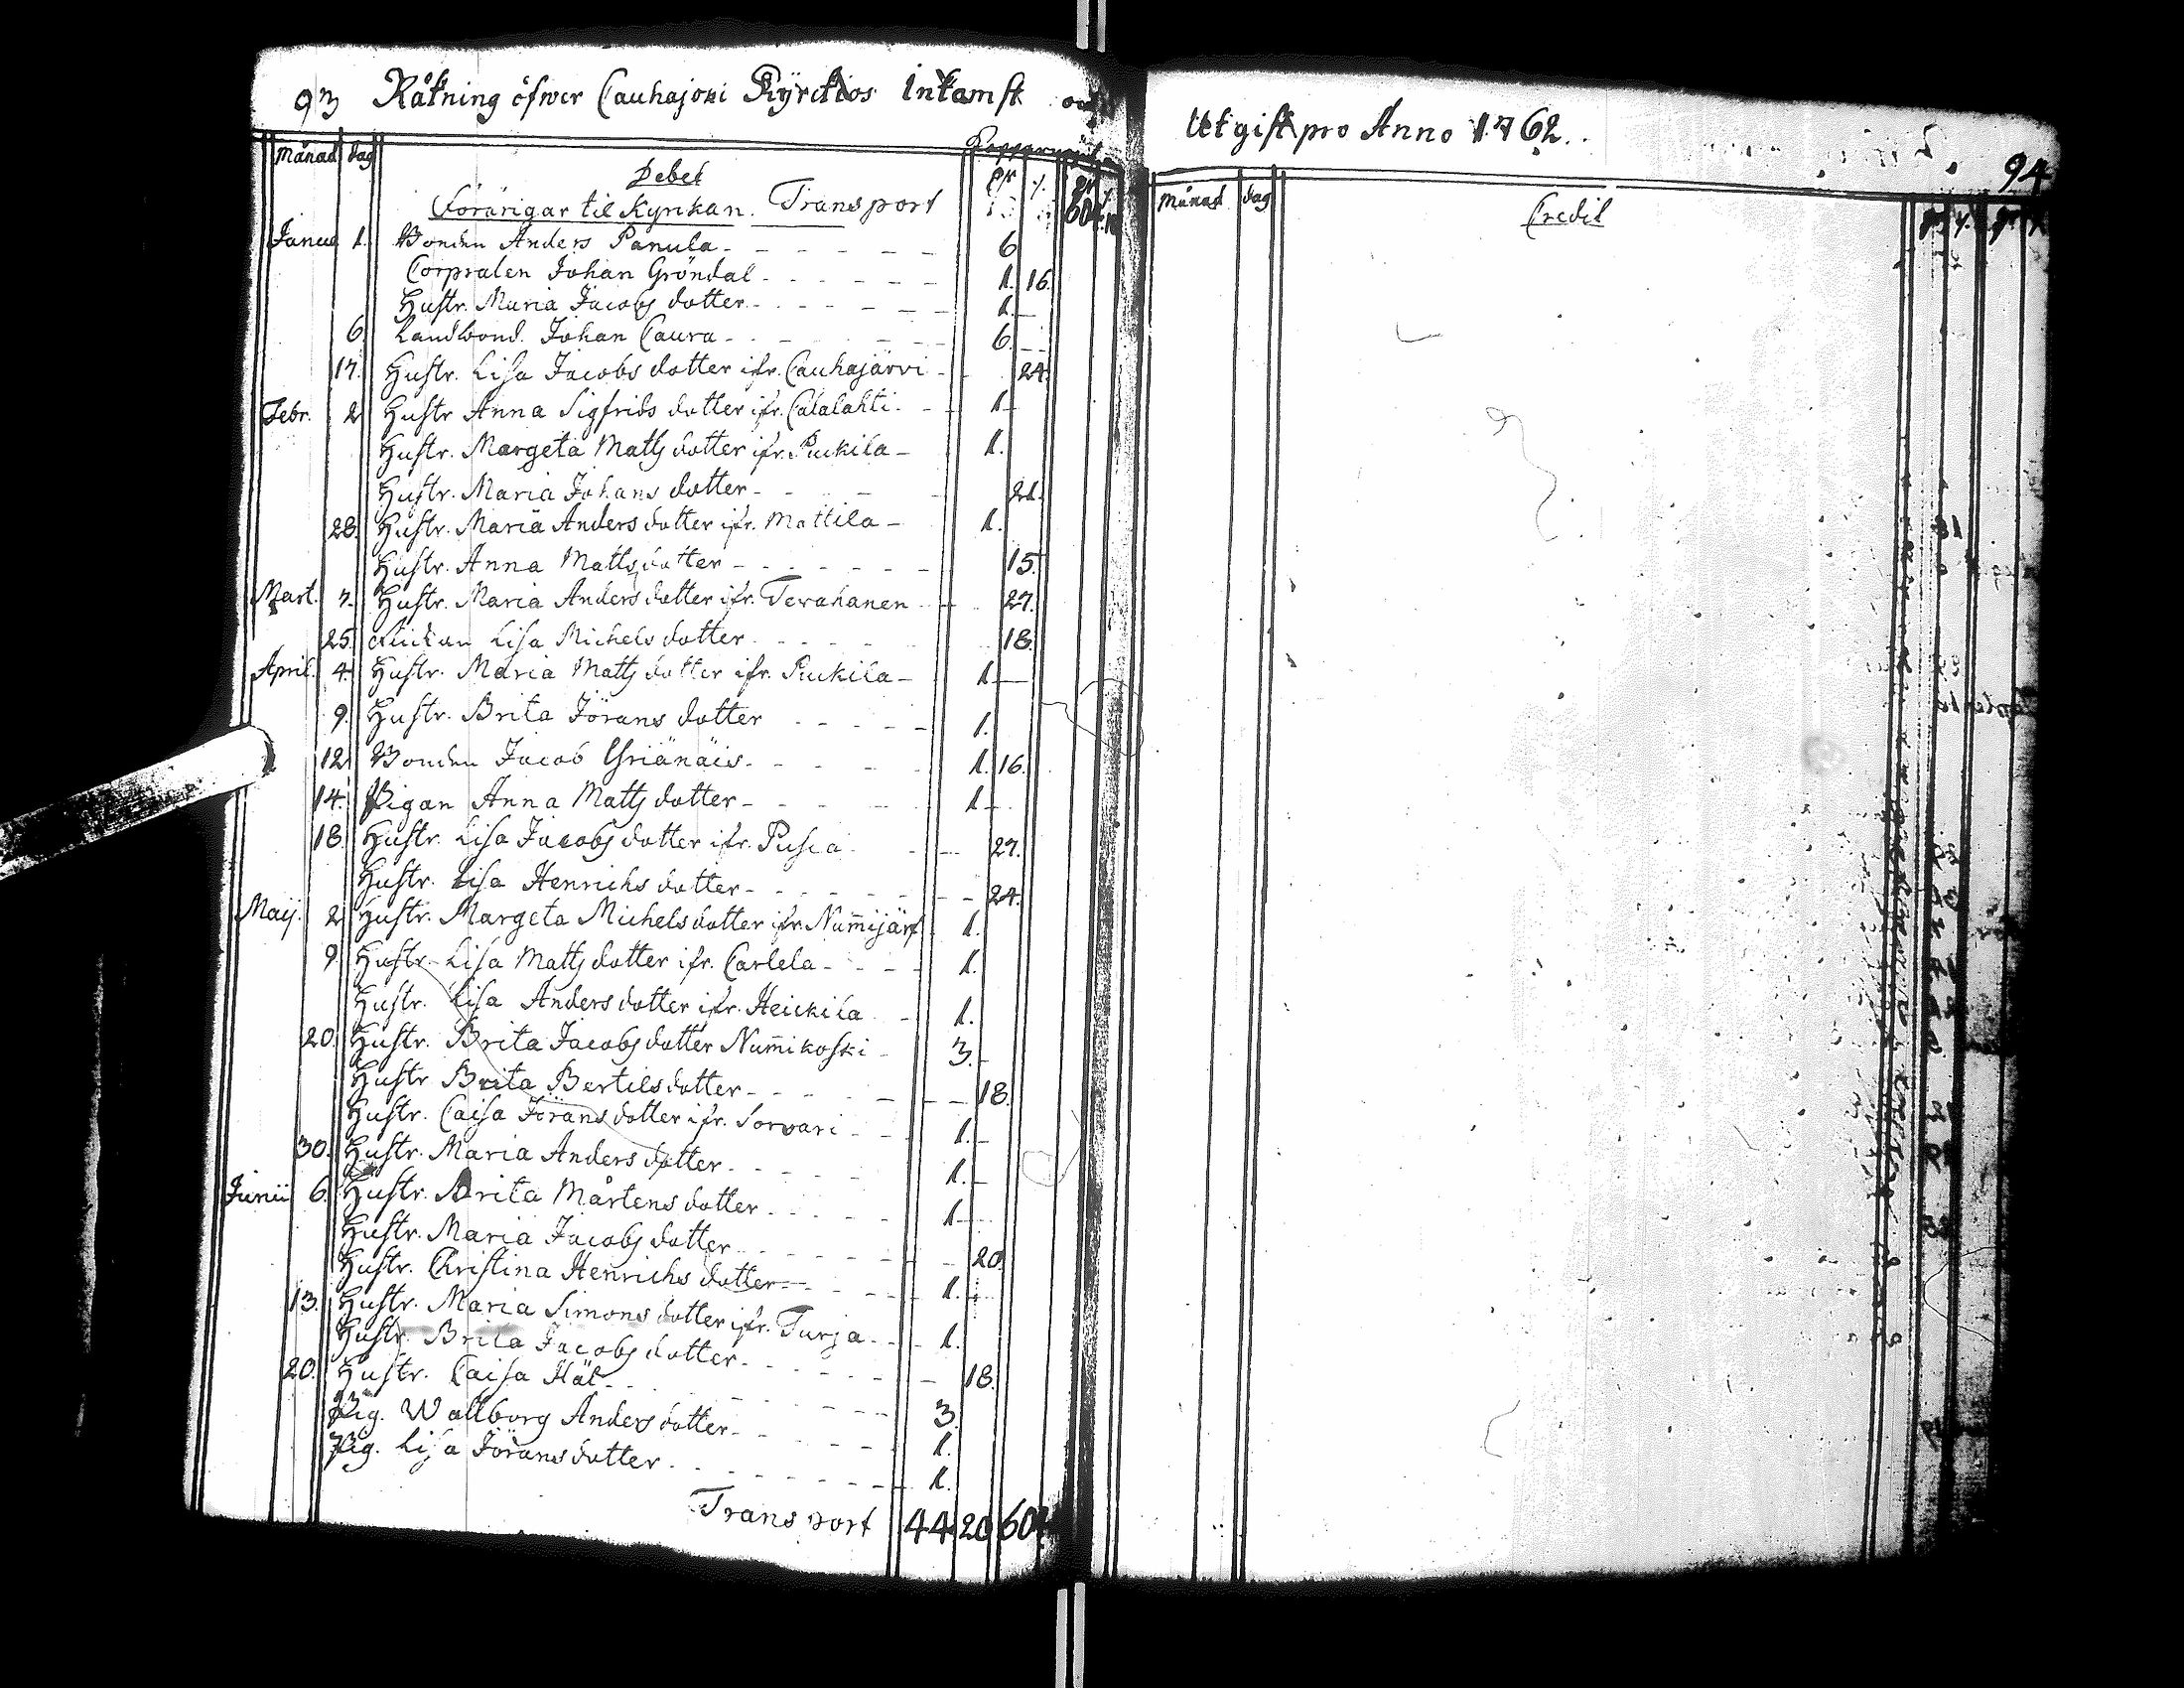 93 Räkning öfwer Cauhajoki Kyrckios Inkomst och
Månad dag Kopparmynt
Debet
Förärigar til Kyrkan. Transport 604
Janua 1. Bonden Anders Panula 6
Corpralen Johan Gröndal 1. 16.
Hustr. Maria Jacobs dotter 1.
6. Landbond. Johan Caura 6.
17. Hustr. Lisa Jacobs dotter ifr. Cauhajärvi 24.
Febr. 2 Hustr Anna Sigfrids dotter ifr. 1
Hustr. Margeta Matts dotter ifr. Puckila 1.
Hustr. Maria Johans dotter 21.
28. Hustr. Maria Anders dotter ifr. Mattila 1.
Hustr. Anna Matts dotter 15.
Mart. 7. Hustr. Maria Anders dotter ifr. Terahanen 27.
25. Lisa Michels dotter 18.
April. 4. Hustr. Maria Matts dotter ifr. Puckila 1
9. Hustr. Brita Jörans dotter 1.
12 Bonden Jacob Yrjänäis 1. 16.
14. Pigan Anna Matts dotter 1
18. Hustr. Lisa Jacobs dotter ifr. Pusca 27.
Hustr. Lisa Henrichs dotter 24.
Maij. 2 Hustr. Margeta Michels dotter ifr. Num̄ijärf 1.
9. Hustr. Lisa Matts dotter ifr. Carlela 1.
Hustr. Lisa Anders dotter ifr. Heickila 1.
20. Hustr. Brita Jacobs dotter Num̄ikoski 3.
Hustr Brita Bertils dotter 18.
Hustr. Caisa Jörans dotter ifr. Sorvari 1.
30. Hustr. Maria Anders dotter 1.
Junii 6. Hustr. Brita Mårtens dotter 1
Hustr. Maria Jacobs dotter 20.
Hustr. Christina Henrichs dotter 1.
13. Hustr. Maria Simons dotter ifr. Turja 1.
Hustr. Brita Jacobs dotter 18.
20. Hustr. Caisa Häl 3.
Pig. Wallborg Anders dotter 1.
Pig. Lisa Jörans dotter 1.
Transport 44 20 604
Utgift pro Anno 1762.
94
Månad dag
Credit